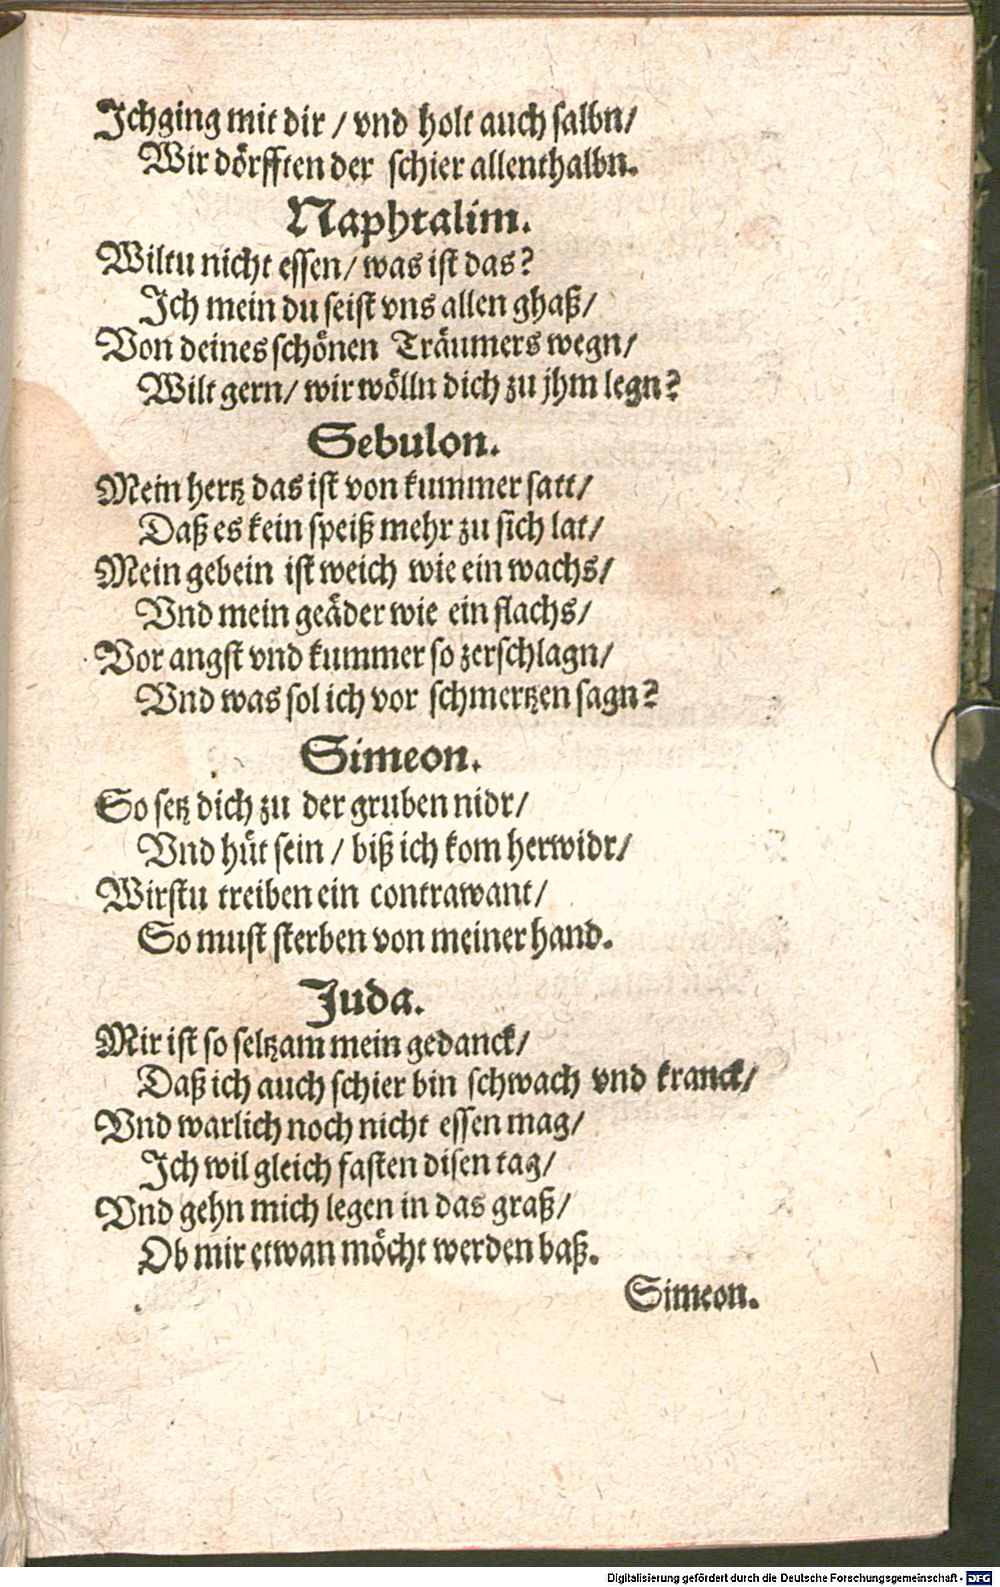 Ich ging mit dir / vnd holt auch salbn/
Wir dörfften der schier allenthalbn.
Naphtalim.
Wiltu nicht essen/ was ist das?
Ich mein du seist vns allen ghaß/
Von deines schönen Träumers wegn/
Wilt gern/ wir wölln dich zu jhm legn?
Sebulon.
Mein hertz das ist von kummer satt/
Daß es kein speiß mehr zu sich lat/
Mein gebein ist weich wie ein wachs/
Vnd mein geäder wie ein flachs/
Vor angst vnd kummer so zerschlagn/
Vnd was sol ich vor schmertzen sagn?
Simeon.
So setz dich zu der gruben nidr/
Vnd hüt sein / biß ich kom herwidr/
Wirstu treiben ein contrawant/
So must sterben von meiner hand.
Juda.
Mir ist so seltzam mein gedanck/
Daß ich auch schier bin schwach vnd kranck/
Vnd warlich noch nicht essen mag/
Ich wil gleich fasten disen tag/
Vnd gehn mich legen in das graß/
Ob mir etwan möcht werden baß.
Simeon.
Digitalisierung gefördert durch die Deutsche Forschungsgemeinschaft - DFG